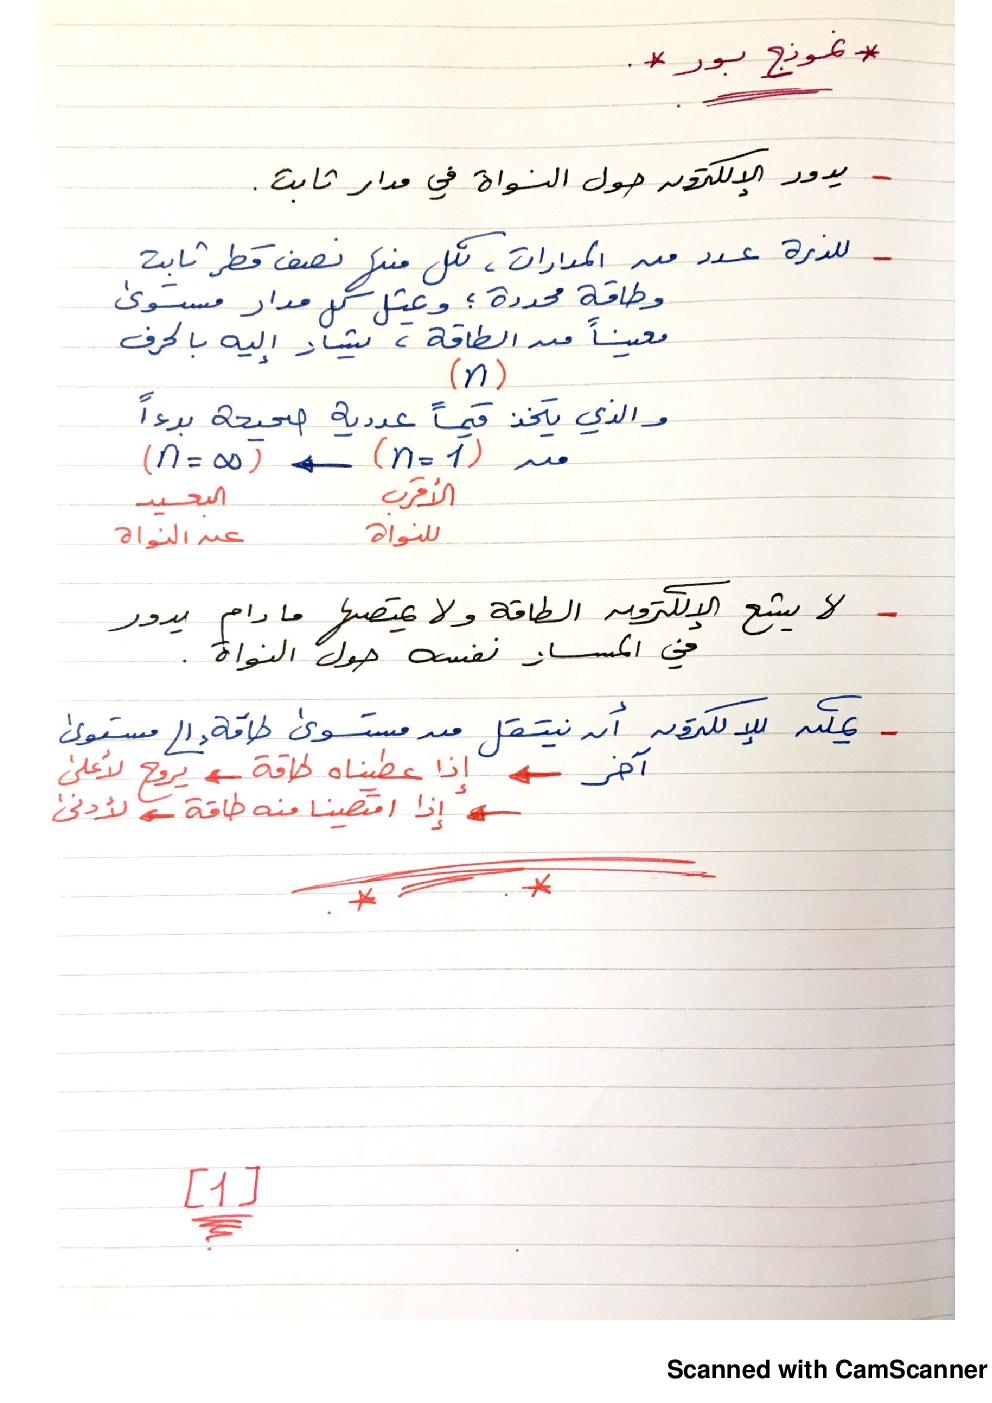 * نموذج بور *
- يدور الإلكترون حول النواة في مدار ثابت .
- للذرة عدد من المدارات ، لكل منها نصف قطر ثابت
وطاقة محددة ؛ ويمثل كل مدار مستوىً
معيناً من الطاقة ، يشار إليه بالحرف
(n)
والذي يتخذ قيماً عددية صحيحة بدءاً
من (n = 1) ← (n = ∞)
الأقرب البعيد
للنواة عن النواة
- لا يشع الإلكترون الطاقة ولا يمتصها مادام يدور
في المسار نفسه حول النواة .
- يمكن للإلكترون أن ينتقل من مستوى طاقة إلى مستوى
آخر ← إذا عطيناه طاقة ← يروح لأعلى
← إذا امتصينا منه طاقة ← لأدنى
* *
[1]
Scanned with CamScanner